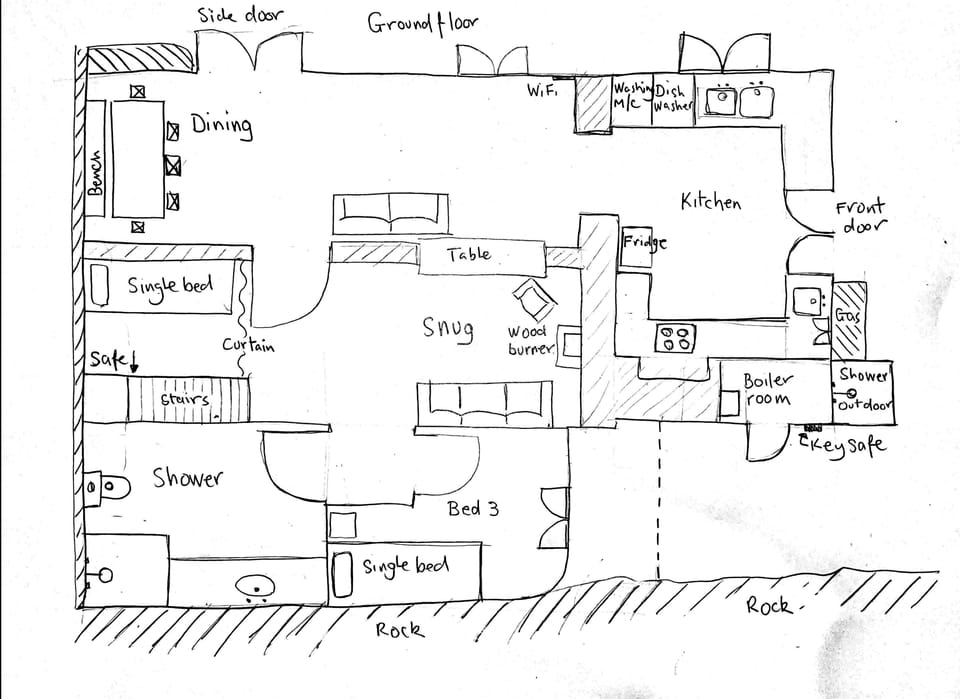 Side door
Ground floor
WiFi
Washing
M/C
Dish
washer
Dining
Bench
Kitchen
Front
door
Fridge
Table
Single bed
Snug
Wood
burner
Curtain
Gas
Safe
Stairs
Boiler
room
Shower
Outdoor
Key Safe
Shower
Bed 3
Single bed
Rock
Rock